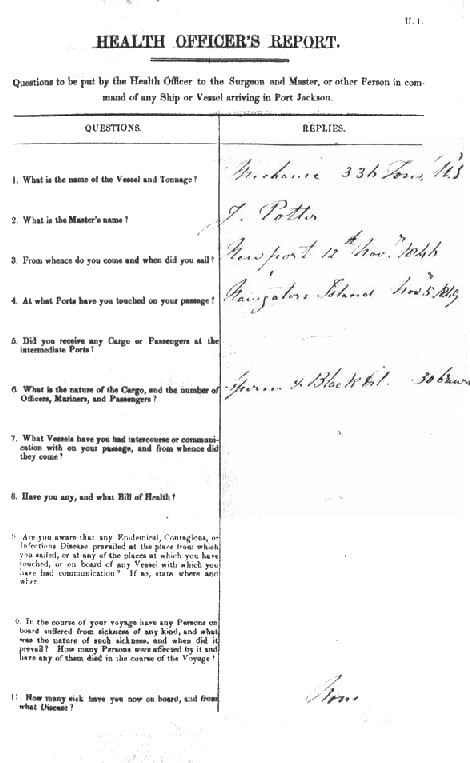 U. 1.
HEALTH OFFICER'S REPORT.
Questions to be put by the Health Officer to the Surgeon and Master, or other Person in com-
mand of any Ship or Vessel arriving in Port Jackson.
QUESTIONS. REPLIES.
1. What is the name of the Vessel and Tonnage? Mechanic 336 Tons, U.S
2. What is the Master's name? J. Potter
3. From whence do you come and when did you sail? Newport 12th Novr 1844
4. At what Ports have you touched on your passage? Navigators Island Novr 5
5. Did you receive any Cargo or Passengers at the
intermediate Ports?
6. What is the nature of the Cargo, and the number of
Officers, Mariners, and Passengers? Sperm & Black Oil. 30
7. What Vessels have you had intercourse or communi-
cation with on your passage, and from whence did
they come?
8. Have you any, and what Bill of Health?
9. Are you aware that any Epidemical, Contagious, or
Infectious Disease prevailed at the place from which
you sailed, or at any of the places at which you have
touched, or on board of any Vessel with which you
have had communication? If so, state where and
when
10. In the course of your voyage have any Persons on
board suffered from sickness of any kind, and what
was the nature of such sickness, and when did it
prevail? How many Persons were affected by it and
have any of them died in the course of the Voyage?
11. How many sick have you now on board, and from
what Disease? None